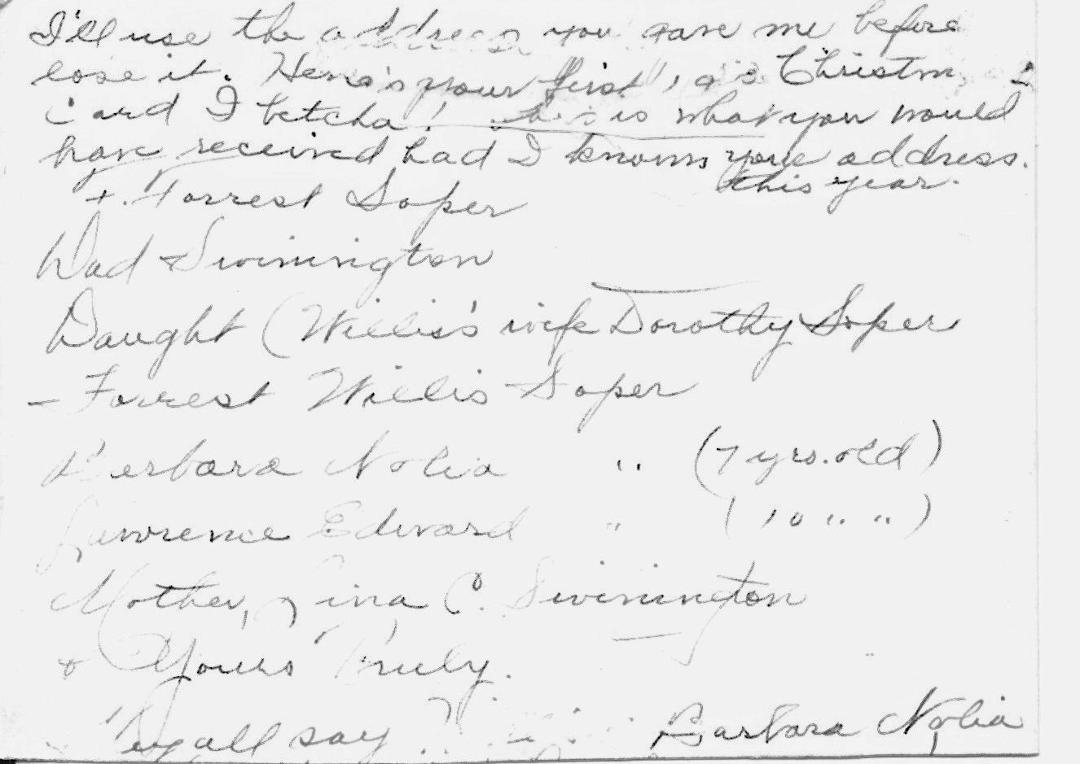 I'll use the address you gave me before
lose it. Here's your first, a's Christm
Card I betcha! is what you would
have received had I known your address.
this year.
F. Forrest Soper
Dad Swinington
Daught (Willis's wife Dorothy Soper
- Forrest Willis Soper
Barbara Nolia " (7 yrs. old)
Lawrence Edward " (10 " ")
Mother, Lina C. Swinington
& Yours Truly.
all say Barbara Nolia